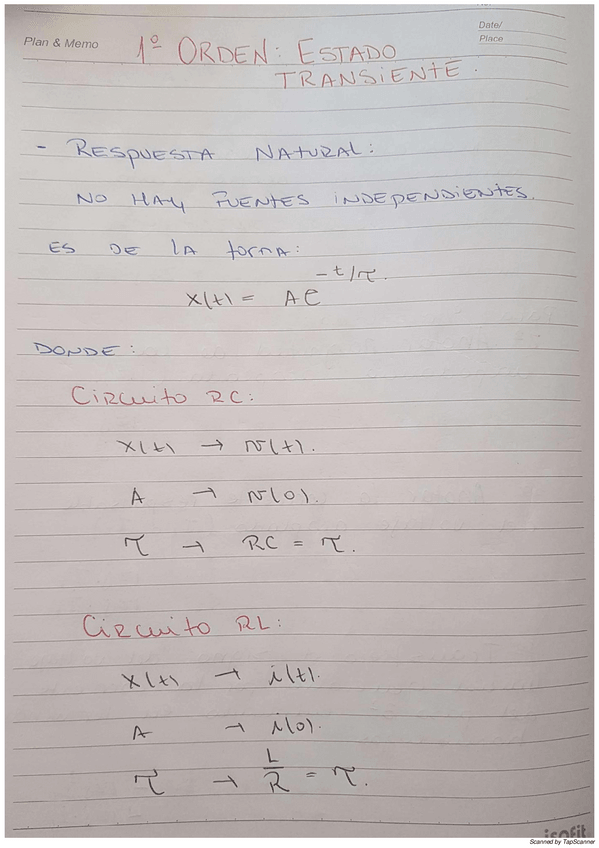 Plan & Memo
Date/
Place
1º ORDEN: ESTADO
TRANSIENTE.
- RESPUESTA NATURAL:
NO HAY FUENTES INDEPENDIENTES.
ES DE LA forma:
x(t) = Ae^-t/τ.
DONDE:
Circuito RC:
x(t) → v(t).
A → v(0).
τ → RC = τ.
Circuito RL:
x(t) → i(t).
A → i(0).
τ → L/R = τ.
isofit
Scanned by TapScanner